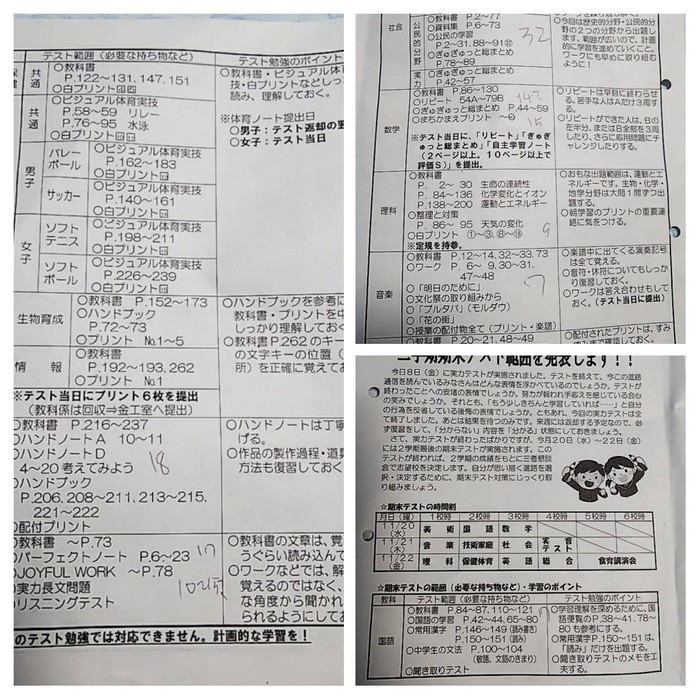 テスト範囲（必要な持ち物など）
テスト勉強のポイント
共通
○教科書
P.122～131.147.151
○白プリント
○教科書・ビジュアル体
技・白プリントなどしっ
読み、理解しておく。
共通
○ビジュアル体育実技
P.58～59 リレー
P.76～95 水泳
○白プリント
※体育ノート提出日
○男子：テスト返却の
○女子：テスト当日
男子
バレーボール
○ビジュアル体育実技
P.162～183
○白プリント
サッカー
○ビジュアル体育実技
P.140～161
○白プリント
女子
ソフトテニス
○ビジュアル体育実技
P.198～211
○白プリント
ソフトボール
○ビジュアル体育実技
P.226～239
○白プリント
生物育成
○教科書 P.152～173
○ハンドブック
P.72～73
○プリント №1～5
○ハンドブックを参考に
教科書・プリントを中
しっかり理解しておく
○教科書P.262のキー
の文字キーの位置（
所）を正確に覚えてお
情報
○教科書
P.192～193.262
○プリント №1
※テスト当日にプリント6枚を提出
（教科係は回収→金工室へ提出）
○教科書 P.216～237
○ハンドノートA 10～11
○ハンドノートD
4～20 考えてみよう
18
○ハンドブック
P.206,208～211,213～215,
221～222
○配付プリント
○ハンドノートは丁寧
げる。
○作品の製作過程・道具
方法も復習しておく
○教科書 ～P.73
○パーフェクトノート P.6～23
○JOYFUL WORK ～P.78
○実力長文問題
○リスニングテスト
○教科書の文章は、覚
うぐらい読み込んで
○ワークなどでは、解
覚えるのではなく、
な角度から聞かれ
られるようにして
のテスト勉強では対応できません。計画的な学習を！
社会
公民的分野
○教科書 P.2～77
○資料集 P.6～73
○公民の学習
P.2～31.88～91
P.78～89
○ぎゅぎゅっと総まとめ
32
実力
○ぎゅぎゅっと総まとめ
P.42～57
○今回は歴史的分野・公民的分
野の2つの分野から出題し
ます。範囲が広いので、計画
的に学習を進めていくこと。
ワークにも早めに取り組む
ように！
数学
○教科書 P.86～130
○リピート 54A～79B
○ぎゅぎゅっと総まとめ P.44～59
○まちかえまプリント
15
※テスト当日に、「リピート」「ぎゅぎ
ゅっと総まとめ」「自主学習ノート
（2ページ以上。10ページ以上で
評価S）」を提出。
○リピートは早目に終わらせ
る。苦手な人はAだけ3周す
る。
○リピートができた人は、Bの
左半分、またはB全部を3周
したり、さらに応用問題にチ
ャレンジしたりする。
理科
○教科書
P. 2～ 30 生命の連続性
P. 84～136 化学変化とイオン
P.138～200 運動とエネルギー
○整理と対策
P. 86～ 95 天気の変化
○白プリント ①～③.⑧～⑱
9
※定規を持参。
○おもな出題範囲は、運動とエ
ネルギーです。生物・化学・
地学分野は大問1問ずつ出
題する。
○朝学習のプリントの重要連
絡に気をつける。
音楽
○教科書 P.12～14.32～33.73
○ワーク P.6～ 9.30～31.
47～48
7
○「明日のために」
○文化祭の取り組みから
○「ブルタバ」（モルダウ）
○「花の街」
○授業の配付物全て（プリント・楽譜）
○楽譜中に出てくる演奏記号
は全て覚える。
○音符・休符についてもしっか
り復習しておく。
○ワークは答え合わせもして
おく。（テスト当日に提出）
○教科書 P.20～21.48～49
○配付されたプリントは、すみ
二学期期末テスト範囲を発表します！！
今日8日（金）に実力テストが実施されました。テストを終えて、今この進路
通信を読んでいるみなさんはどんな表情を浮かべているのでしょうか。テストが
終わったことへの安堵の表情でしょうか。努力が報われ手応えを感じている会心
の笑みでしょうか。それとも、「もう少しきちんと学習していれば……」と自分
の行為を反省している後悔の表情でしょうか。ともあれ、今回の実力テストは全
て終了しました。あとは結果を待つのみです。来週には返却する予定なので、必
ず復習をして、「分からない」内容を「分かる」状態にしておきましょう。
さて、実力テストが終わったばかりですが、今月20日（水）～22日（金）
には2学期最後の期末テストが実施されます。このテ
ストが終われば、2学期の成績をもとに三者懇談
会で志望校を決定します。自分が思い描く進路を選
択・決定するために、期末テスト対策にじっくり取
り組みましょう。
☆期末テストの時間割
月日（曜） 1校時 2校時 3校時 4校時 5校時 6校時
11/20（水） 美術 国語 数学
11/21（木） 音楽 技術家庭 社会 実音テスト
11/22（金） 理科 保健体育 英語 総合 食育講演会
☆期末テストの範囲（必要な持ち物など）・学習のポイント
教科 テスト範囲（必要な持ち物など） テスト勉強のポイント
国語
○教科書 P.84～87.110～121
○国語の学習 P.42～44.65～80
○常用漢字 P.146～149（読み書き）
P.150～151（読み）
○中学生の文法 P.100～104
（敬語、文語のきまり）
○聞き取りテスト
○学習理解を深めるために、国
語便覧のP.38～41.78～
80も参考にする。
○常用漢字P.150～151は、
「読み」だけを出題する。
○聞き取りテストのメモを工
夫する。